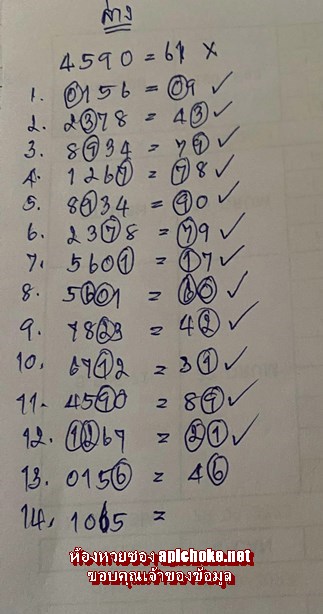 ล่าง
4590 = 61 x
1. 0156 = 09 ✓
2. 2378 = 43 ✓
3. 8934 = 79 ✓
4. 1267 = 78 ✓
5. 8934 = 90 ✓
6. 2378 = 79 ✓
7. 5601 = 17 ✓
8. 5601 = 60 ✓
9. 7823 = 42 ✓
10. 6712 = 31 ✓
11. 4590 = 89 ✓
12. 1267 = 21 ✓
13. 0156 = 46
14. 1065 =
ห้องหวยซอง apichoke.net
ขอบคุณเจ้าของข้อมูล